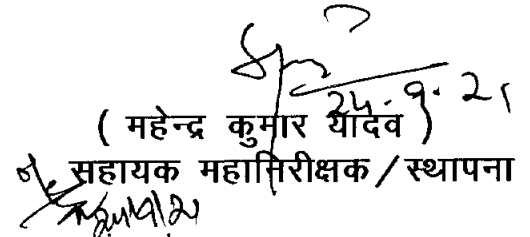 24.9.21
( महेन्द्र कुमार यादव )
सहायक महानिरीक्षक / स्थापना
24/9/21